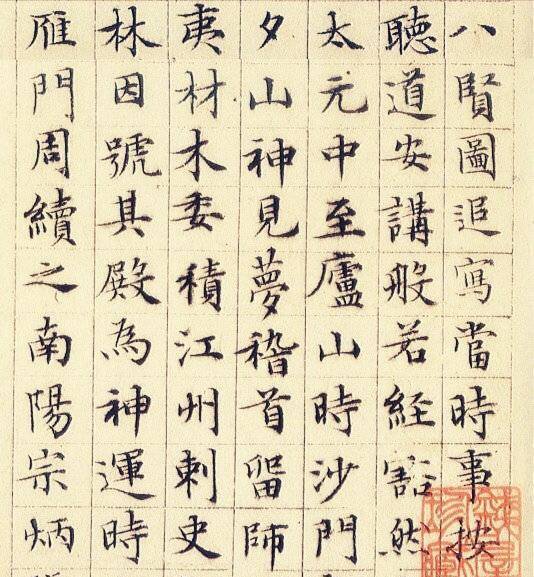 八賢圖追寫當時事按
聽道安講般若經豁然
太元中至廬山時沙門
夕山神見夢稽首留師
夷材木委積江州刺史
林因號其殿為神運時
鴈門周續之南陽宗炳